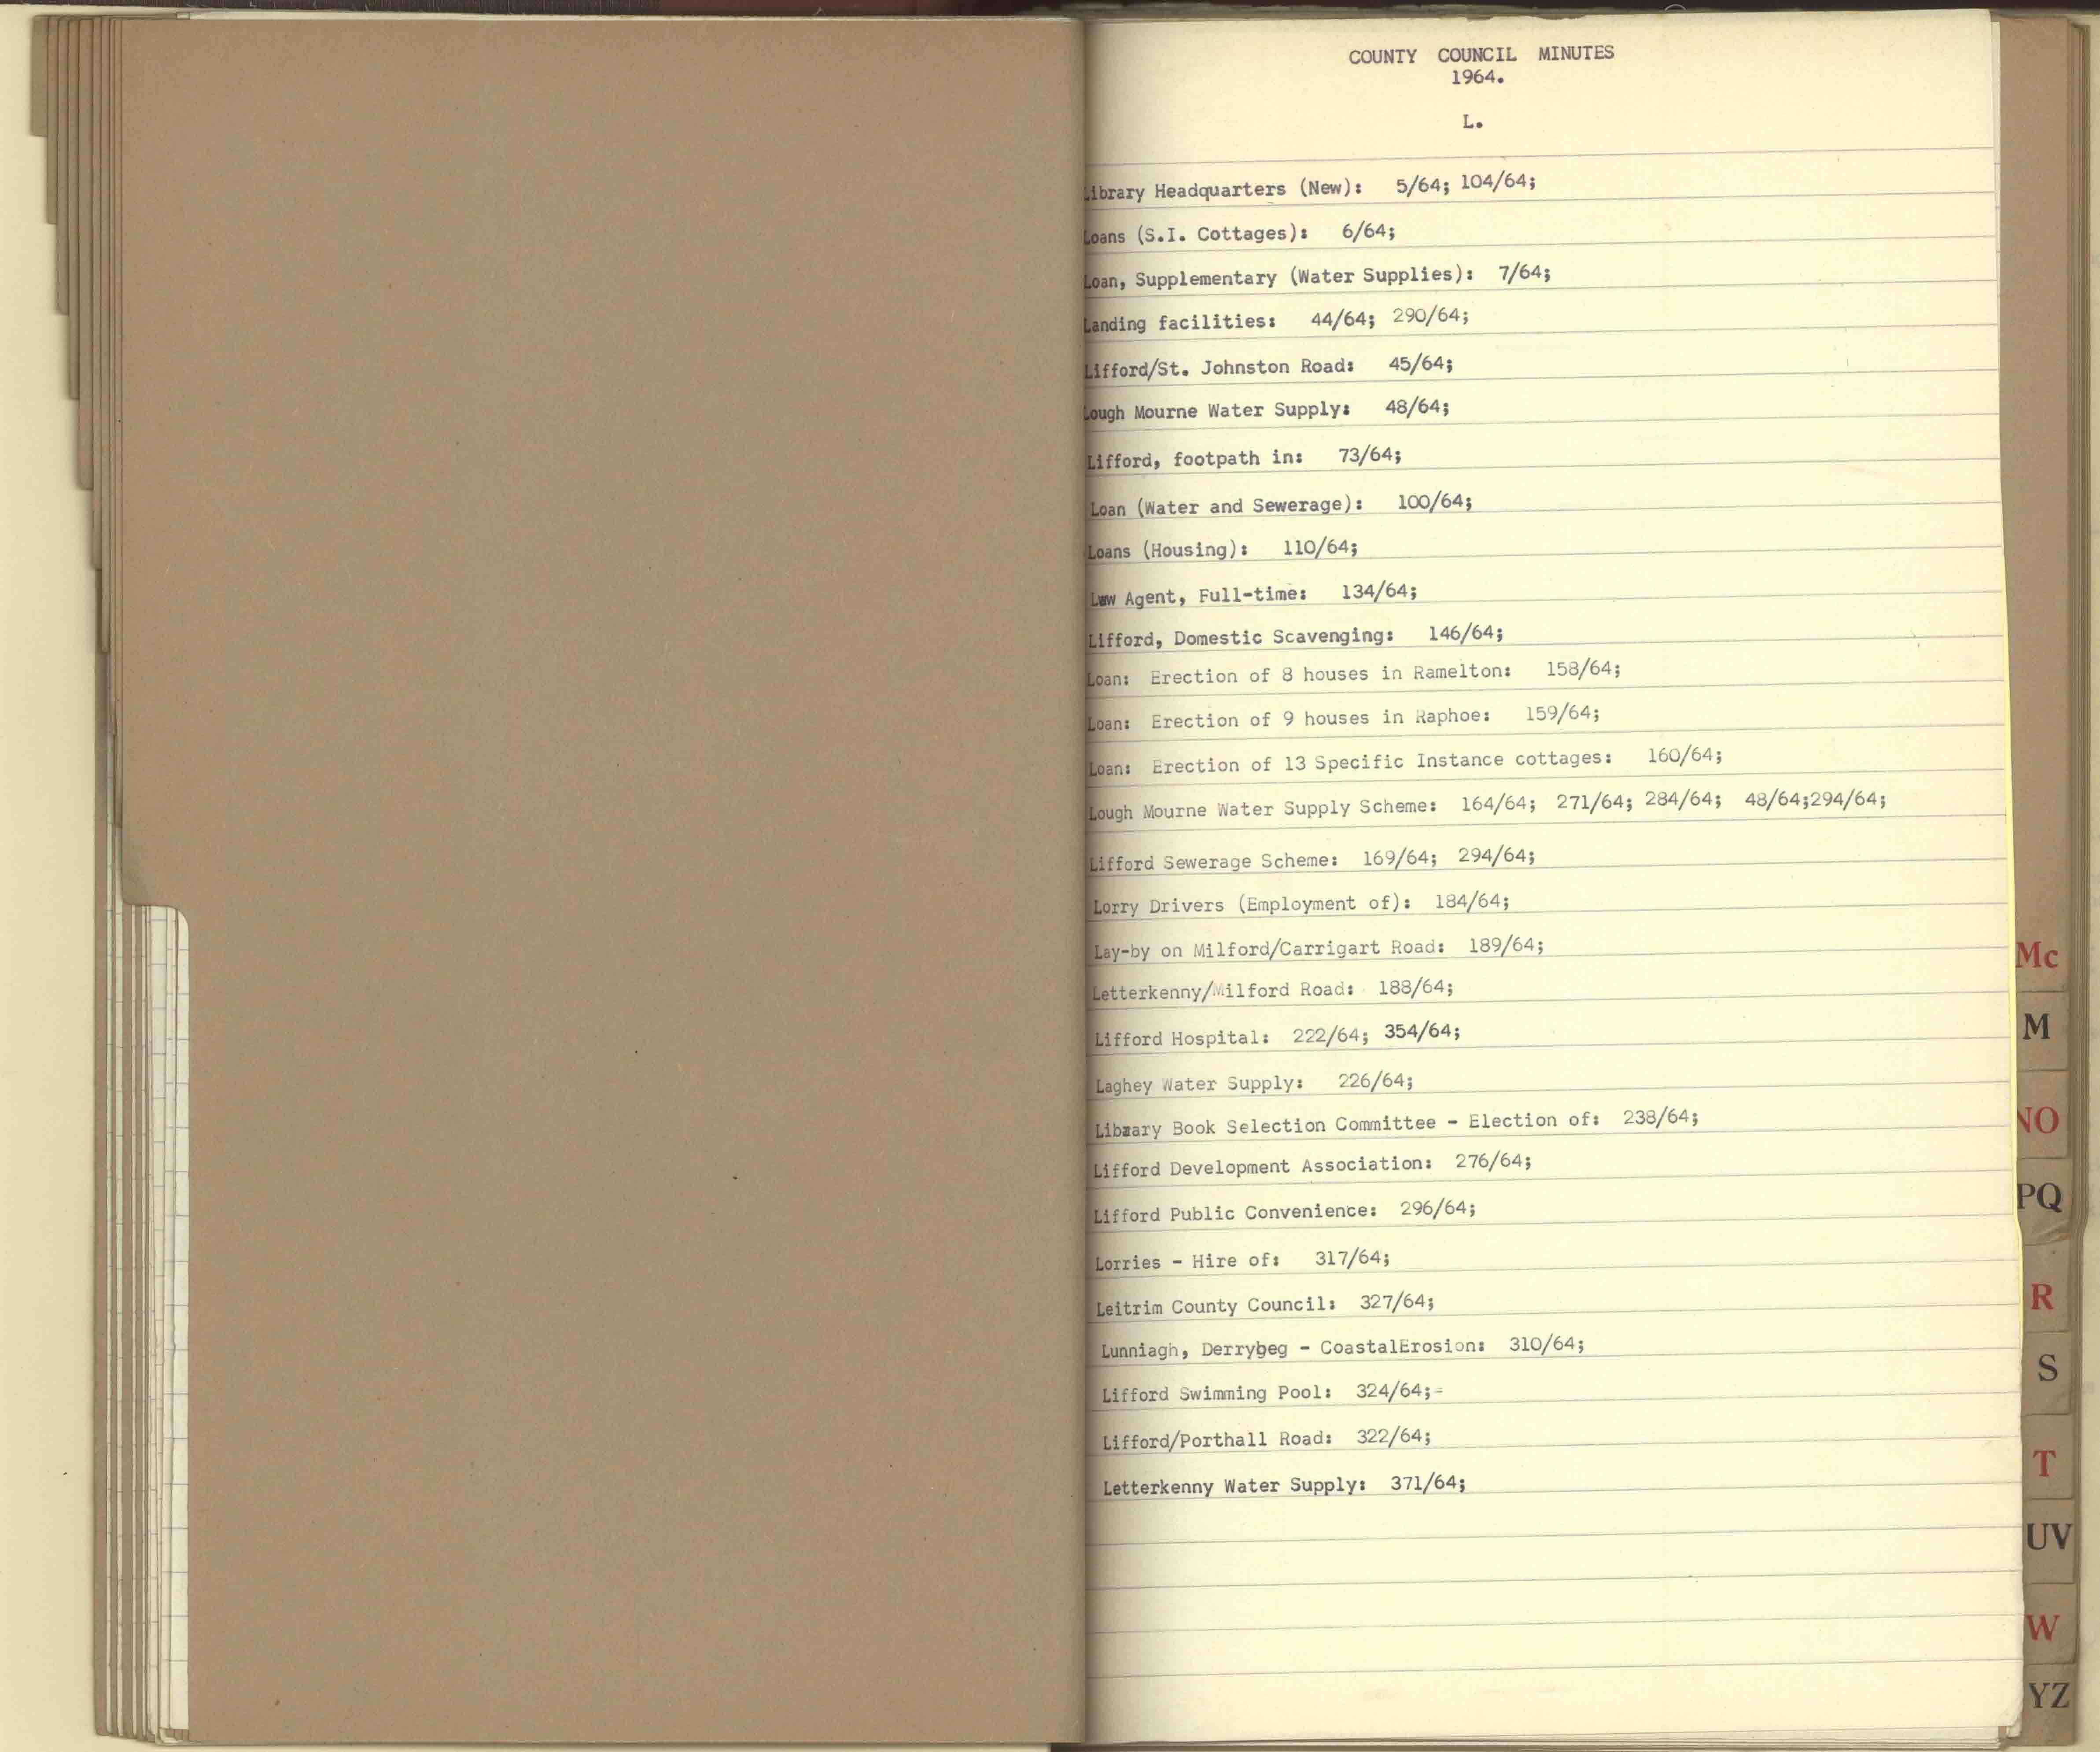 COUNTY COUNCIL MINUTES
1964.
L.
Library Headquarters (New): 5/64; 104/64;
Loans (S.I. Cottages): 6/64;
Loan, Supplementary (Water Supplies): 7/64;
Landing facilities: 44/64; 290/64;
Lifford/St. Johnston Road: 45/64;
Lough Mourne Water Supply: 48/64;
Lifford, footpath in: 73/64;
Loan (Water and Sewerage): 100/64;
Loans (Housing): 110/64;
Law Agent, Full-time: 134/64;
Lifford, Domestic Scavenging: 146/64;
Loan: Erection of 8 houses in Ramelton: 158/64;
Loan: Erection of 9 houses in Raphoe: 159/64;
Loan: Erection of 13 Specific Instance cottages: 160/64;
Lough Mourne Water Supply Scheme: 164/64; 271/64; 284/64; 48/64;294/64;
Lifford Sewerage Scheme: 169/64; 294/64;
Lorry Drivers (Employment of): 184/64;
Lay-by on Milford/Carrigart Road: 189/64;
Letterkenny/Milford Road: 188/64;
Lifford Hospital: 222/64; 354/64;
Laghey Water Supply: 226/64;
Library Book Selection Committee - Election of: 238/64;
Lifford Development Association: 276/64;
Lifford Public Convenience: 296/64;
Lorries - Hire of: 317/64;
Leitrim County Council: 327/64;
Lunniagh, Derrybeg - CoastalErosion: 310/64;
Lifford Swimming Pool: 324/64;-
Lifford/Porthall Road: 322/64;
Letterkenny Water Supply: 371/64;
Mc
M
NO
PQ
R
S
T
UV
W
YZ